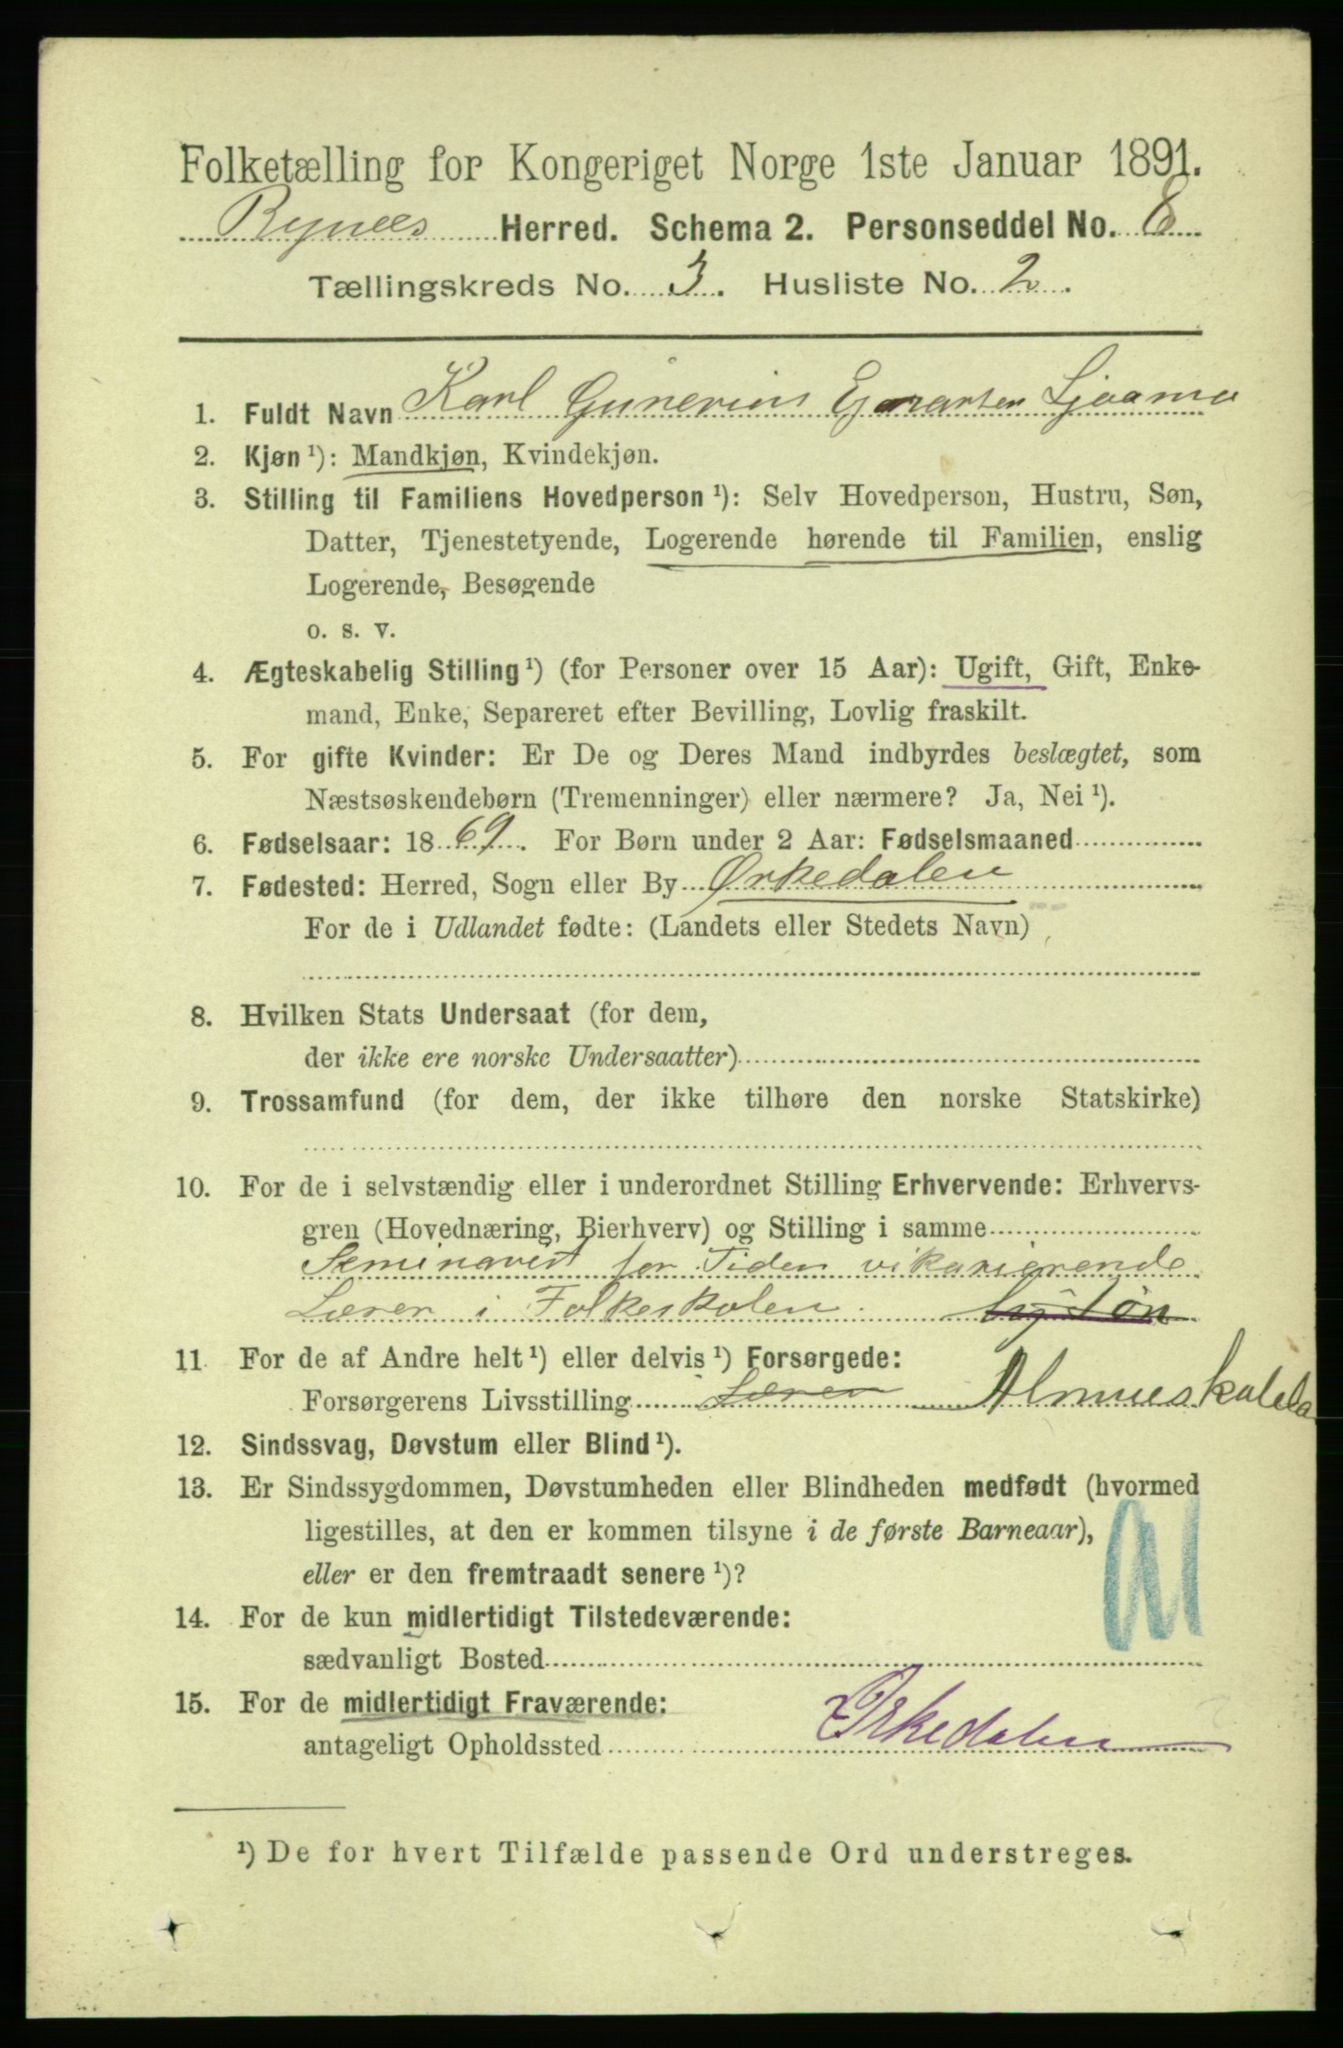 Folketælling for Kongeriget Norge 1ste Januar 1891.
Bynees Herred. Schema 2. Personseddel No. 8
Tællingskreds No. 3. Husliste No. 2.
1. Fuldt Navn Karl Gunerius Ljaamo
2. Kjøn ¹): Mandkjøn, Kvindekjøn.
3. Stilling til Familiens Hovedperson ¹): Selv Hovedperson, Hustru, Søn,
Datter, Tjenestetyende, Logerende hørende til Familien, enslig
Logerende, Besøgende
o. s. v.
4. Ægteskabelig Stilling ¹) (for Personer over 15 Aar): Ugift, Gift, Enke-
mand, Enke, Separeret efter Bevilling, Lovlig fraskilt.
5. For gifte Kvinder: Er De og Deres Mand indbyrdes beslægtet, som
Næstsøskendebørn (Tremenninger) eller nærmere? Ja, Nei ¹).
6. Fødselsaar: 1869. For Børn under 2 Aar: Fødselsmaaned
7. Fødested: Herred, Sogn eller By Ørkedalen
For de i Udlandet fødte: (Landets eller Stedets Navn)
8. Hvilken Stats Undersaat (for dem,
der ikke ere norske Undersaatter)
9. Trossamfund (for dem, der ikke tilhøre den norske Statskirke)
10. For de i selvstændig eller i underordnet Stilling Erhvervende: Erhvervs-
gren (Hovednæring, Bierhverv) og Stilling i samme
Seminarist for Tiden vikarierende
Lærer i Folkeskolen.
11 For de af Andre helt ¹) eller delvis ¹) Forsørgede:
Forsørgerens Livsstilling Lærer
12. Sindssvag, Døvstum eller Blind ¹).
13. Er Sindssygdommen, Døvstumheden eller Blindheden medfødt (hvormed
ligestilles, at den er kommen tilsyne i de første Barneaar),
eller er den fremtraadt senere ¹)?
14. For de kun midlertidigt Tilstedeværende:
sædvanligt Bosted
15. For de midlertidigt Fraværende:
antageligt Opholdssted Ørkedalen
¹) De for hvert Tilfælde passende Ord understreges.